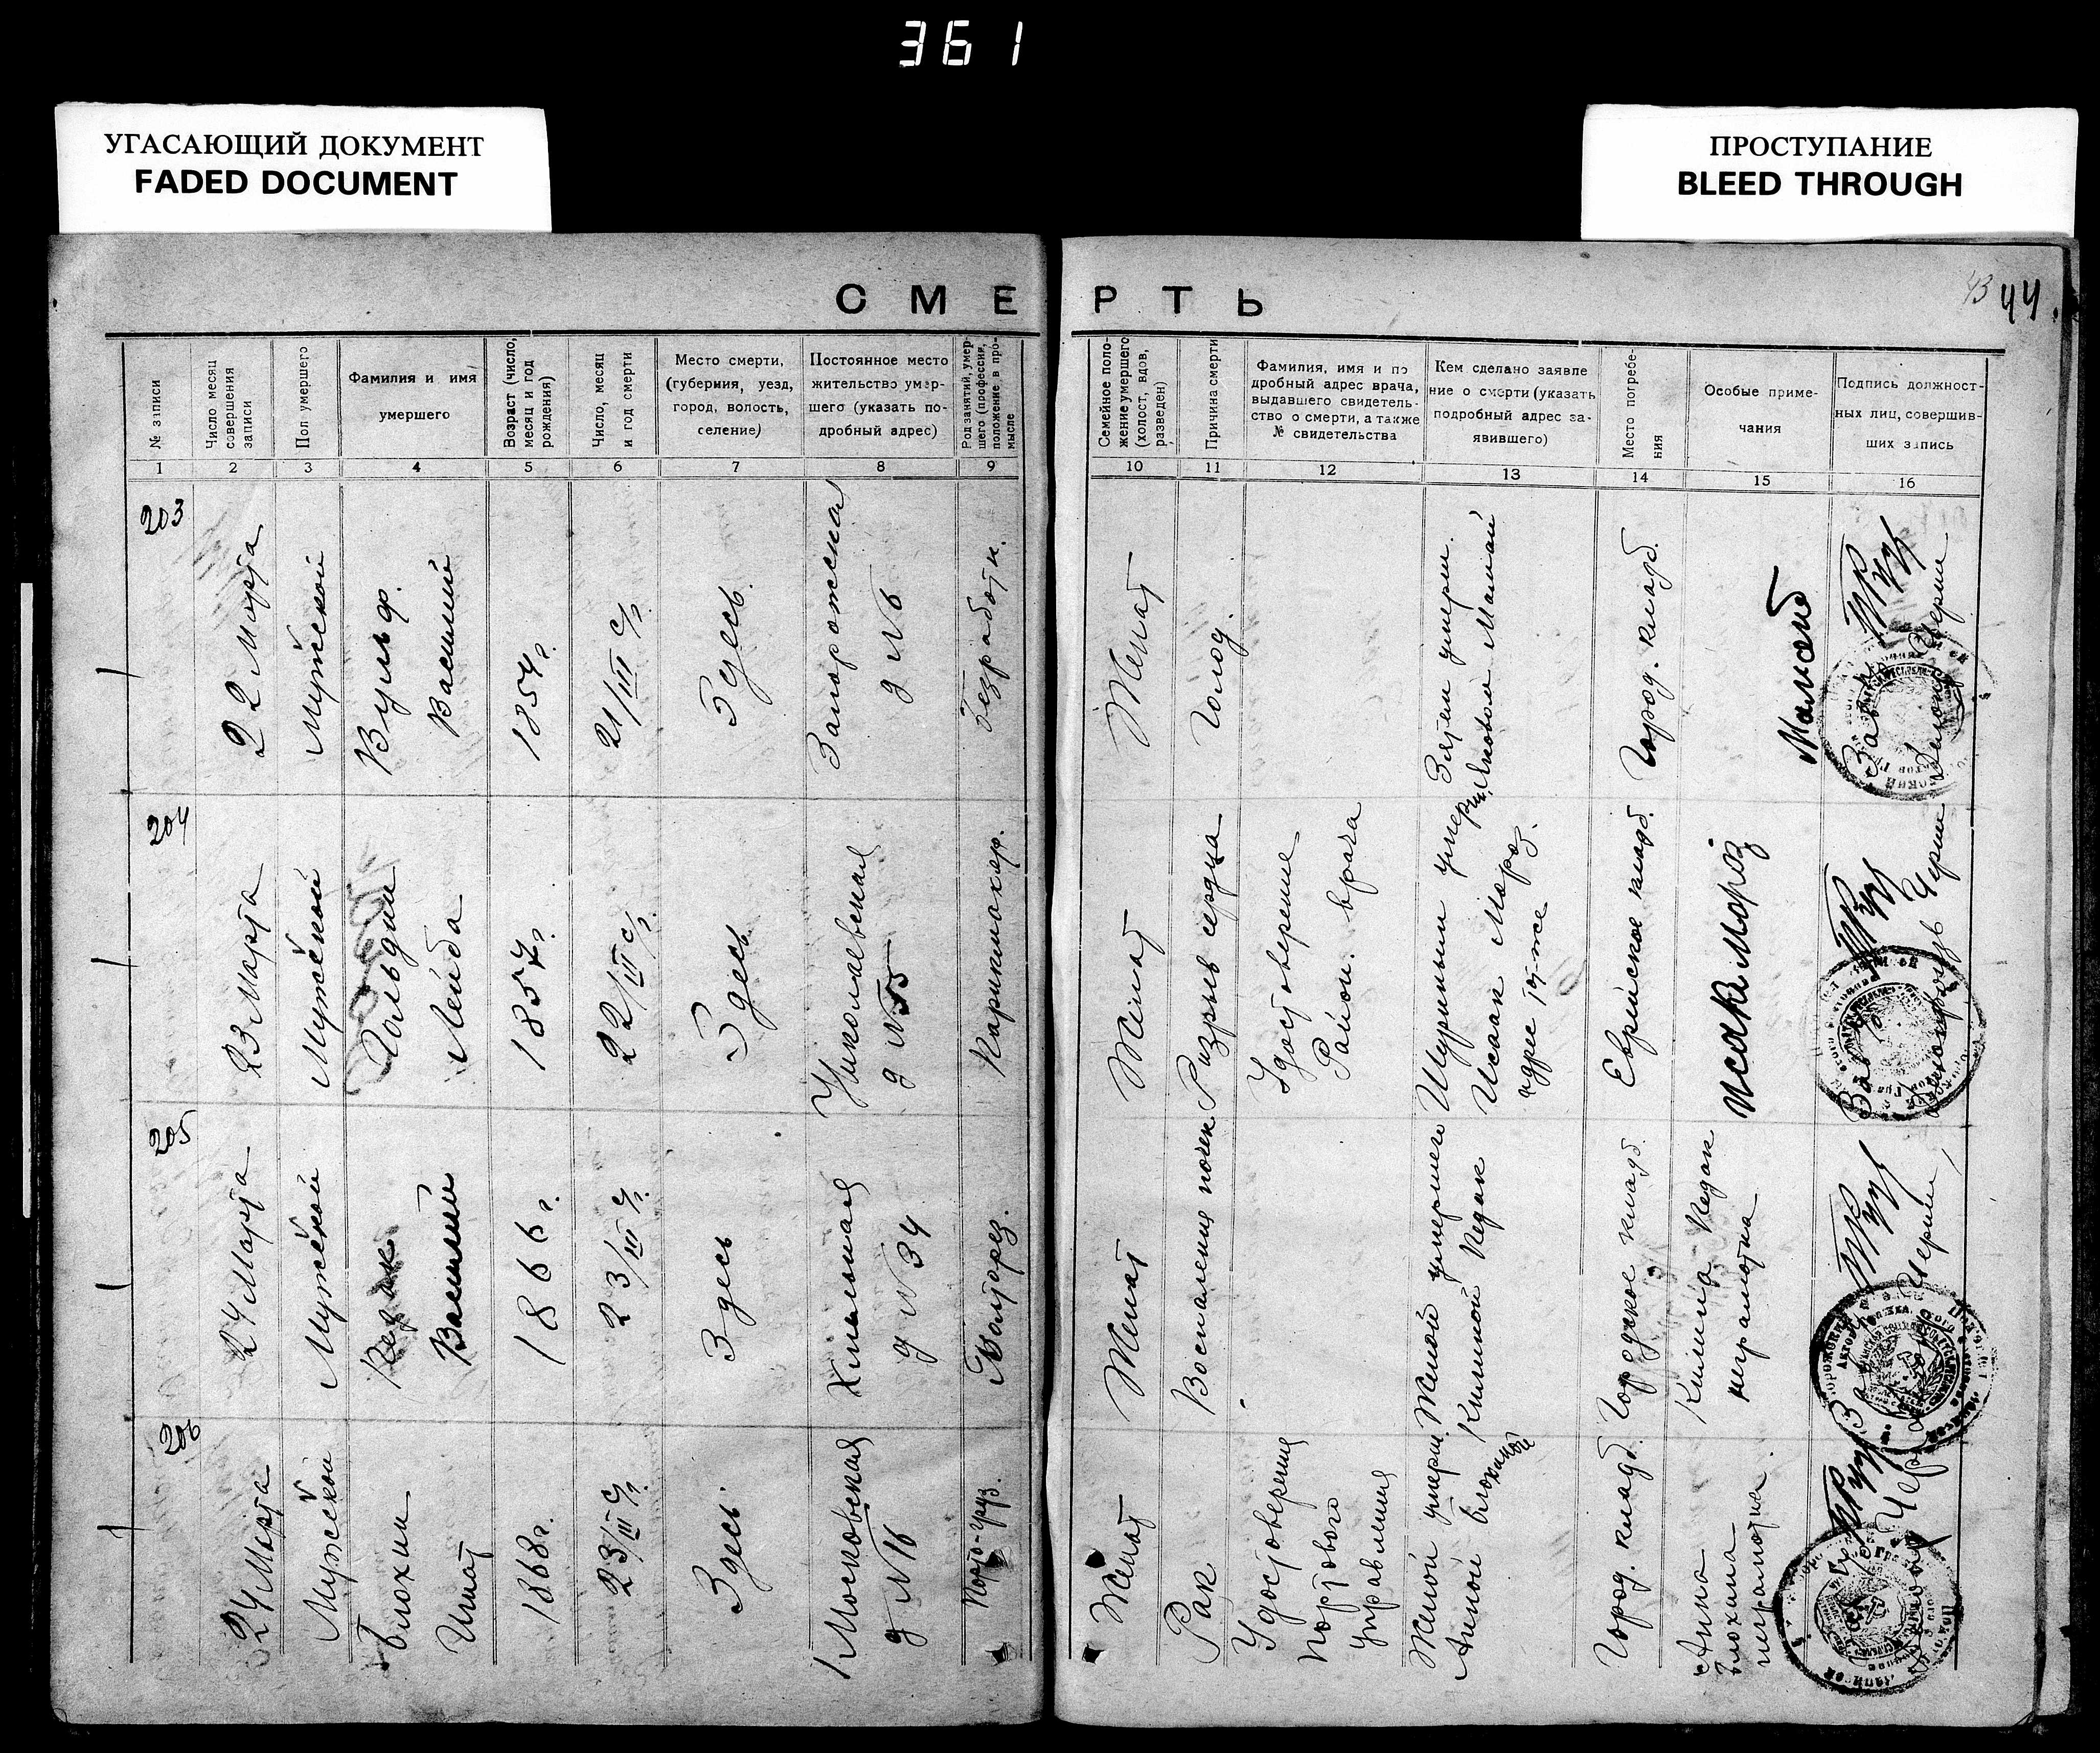 361
УГАСАЮЩИЙ ДОКУМЕНТ
FADED DOCUMENT
ПРОСТУПАНИЕ
BLEED THROUGH
СМЕРТЬ
43 44.
№ записи
Число месяц
совершения
записи
Пол умершего
Фамилия и имя
умершего
Возраст (число,
месяц и год
рождения)
Число, месяц
и год смерти
Место смерти,
(губерния, уезд,
город, волость,
селение)
Постоянное место
жительство умер-
шего (указать по-
дробный адрес)
Род занятий, умер-
шего (профессия,
положение в про-
мысле
Семейное поло-
жение умершего
(холост, вдов,
разведен)
Причина смерти
Фамилия, имя и по
дробный адрес врача,
выдавшего свидетель-
ство о смерти, а также
№ свидетельства
Кем сделано заявле
ние о смерти (указать
подробный адрес за-
явившего)
Место погребе-
ния
Особые приме-
чания
Подпись должност-
ных лиц, совершив-
ших запись
1 2 3 4 5 6 7 8 9 10 11 12 13 14 15 16
203
22 Марта
Мужской
Вульф
Василий
1854 г.
21/III с/г.
Здесь.
Запорожская
д № 6
Безработн.
Женат
Голод.
Зятем умерш.
Город. кладб.
Мамай
204
23 Марта
Мужской
Гольдин
Лейба
1857 г.
22/III с/г.
Здесь
Николаевская
д № 55
Парикмахер.
Женат
Разрыв сердца
Удостоверение
Район. врача
Шурином умерш.
Исаак Мороз.
адрес тот-же
Еврейское кладб.
Исак Мороз
205
24 Марта
Мужской
Кедак
Василий
1866 г.
23/III с/г.
Здесь
Хмельная
д № 34
Женат
Воспаление почек
Женой умершего
Килиной Кедак
Городское кладб.
Килина Кедак
неграмотна
206
24 Марта
Мужской
Блохин
Игнат
1868 г.
23/III с/г.
Здесь
Московская
д № 16
Порто-груз.
Женат
Рак
Удостоверения
Портового
Управления
Женой умерш.
Анной Блохиной
Город. кладб.
Анна
Блохина
неграмотна.